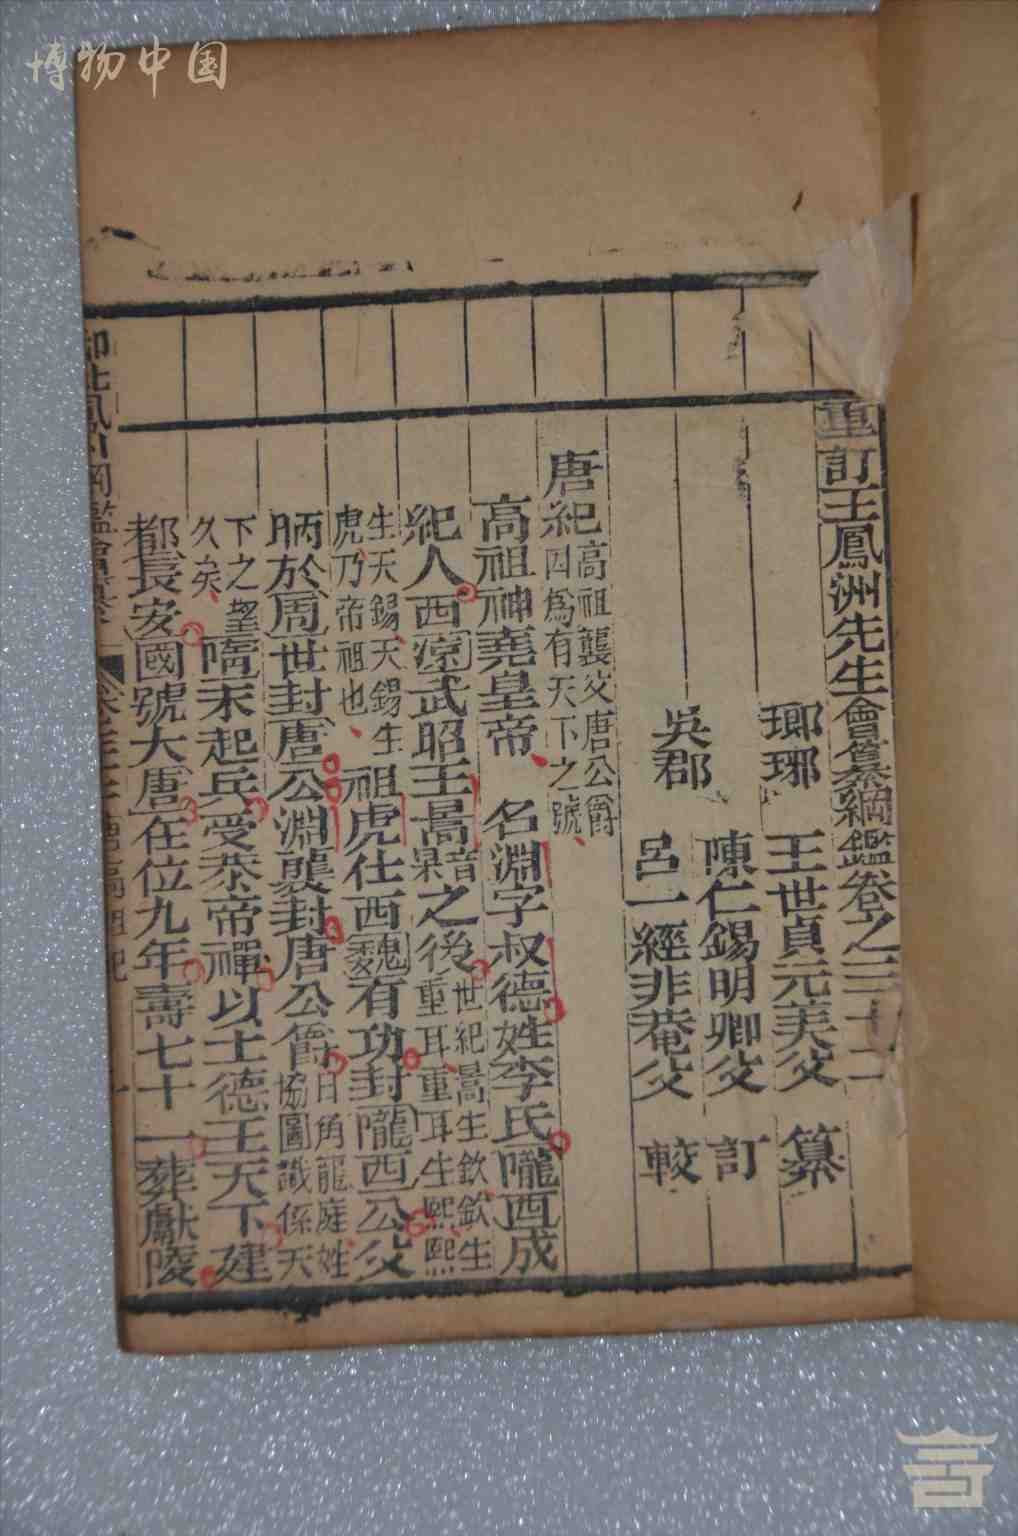 博物中国
重訂王鳳洲先生會纂綱鑑卷之三十二
瑯琊 王世貞元美父 纂
陳仁錫明卿父 訂
吳郡 呂一經非菴父 較
唐紀 高祖襲父唐公爵
因爲有天下之號
高祖神堯皇帝 名淵字叔德姓李氏隴西成
紀人西涼武昭王暠音杲之後世紀暠生歆歆生
重耳重耳生熙熙
生天錫天錫生
虎乃帝祖也 祖虎仕西魏有功封隴西公父
昞於周世封唐公淵襲封唐公爵日角龍庭姓
協圖讖係天
下之望
久矣 隋末起兵受恭帝禪以土德王天下建
都長安國號大唐在位九年壽七十一葬獻陵